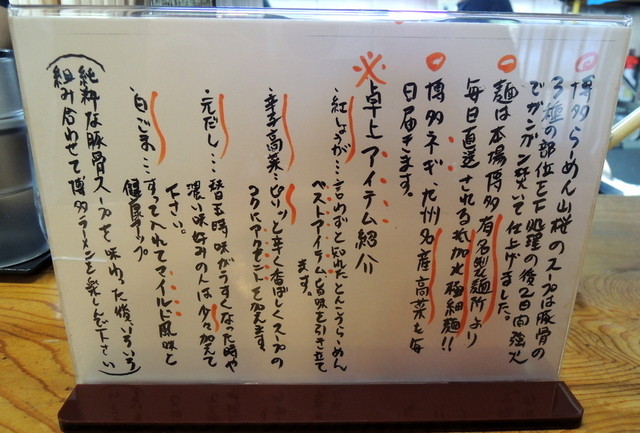 博多らーめん山桜のスープは豚骨の
3種の部位を下処理の後2日間強火
でガンガン焚いて仕上げました。
麺は本場博多有名製麺所より
毎日直送される低加水極細麺!!
博多ネギ、九州名産高菜も毎
日届きます。
※卓上アイテム紹介
紅しょうが…言わずと知れたとんこつらーめん
ベストアイテム
旨味を引き立て
ます。
辛子高菜…ピリッと辛く香ばしくスープの
コクにアクセントを加えます。
元だし…替玉時味がうすくなった時や
濃い味好みの人は少々加えて
下さい。
白ごま…すって入れてマイルド風味と
健康アップ
(純粋な豚骨スープを味わった後いろいろ
組み合わせて博多ラーメンを楽しんで下さい)